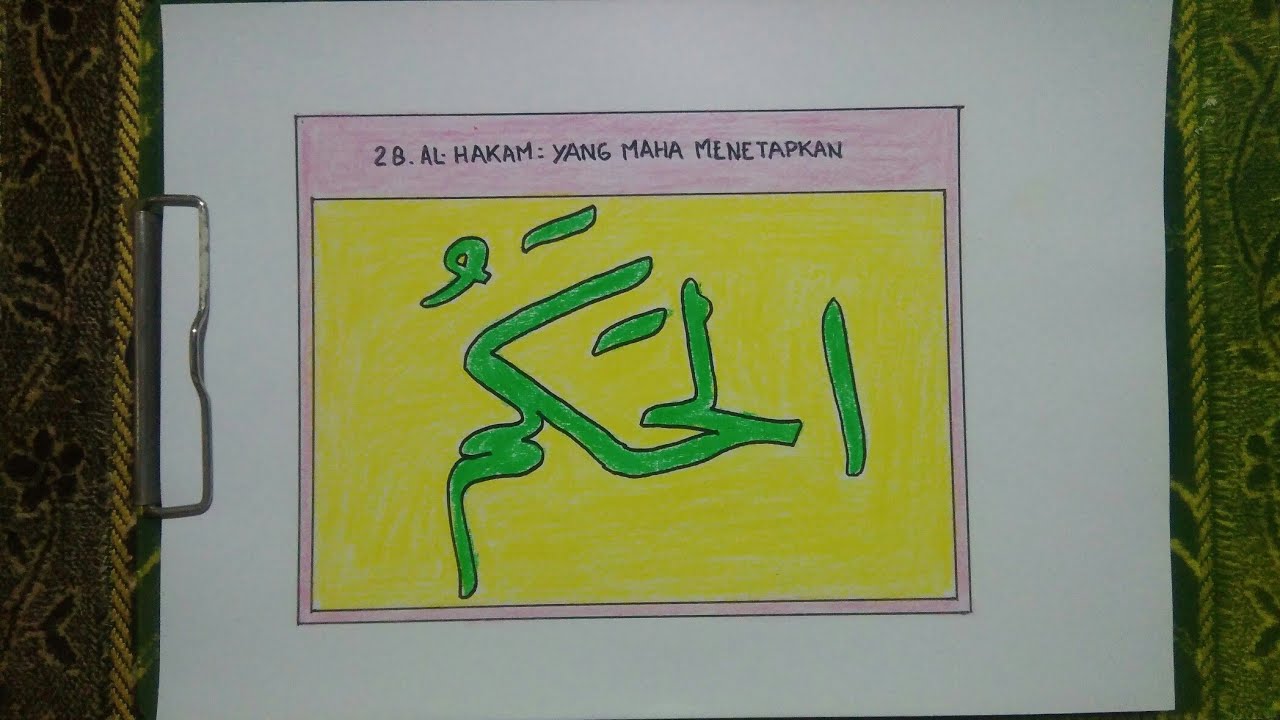 28. AL-HAKAM: YANG MAHA MENETAPKAN
الحَكَمُ